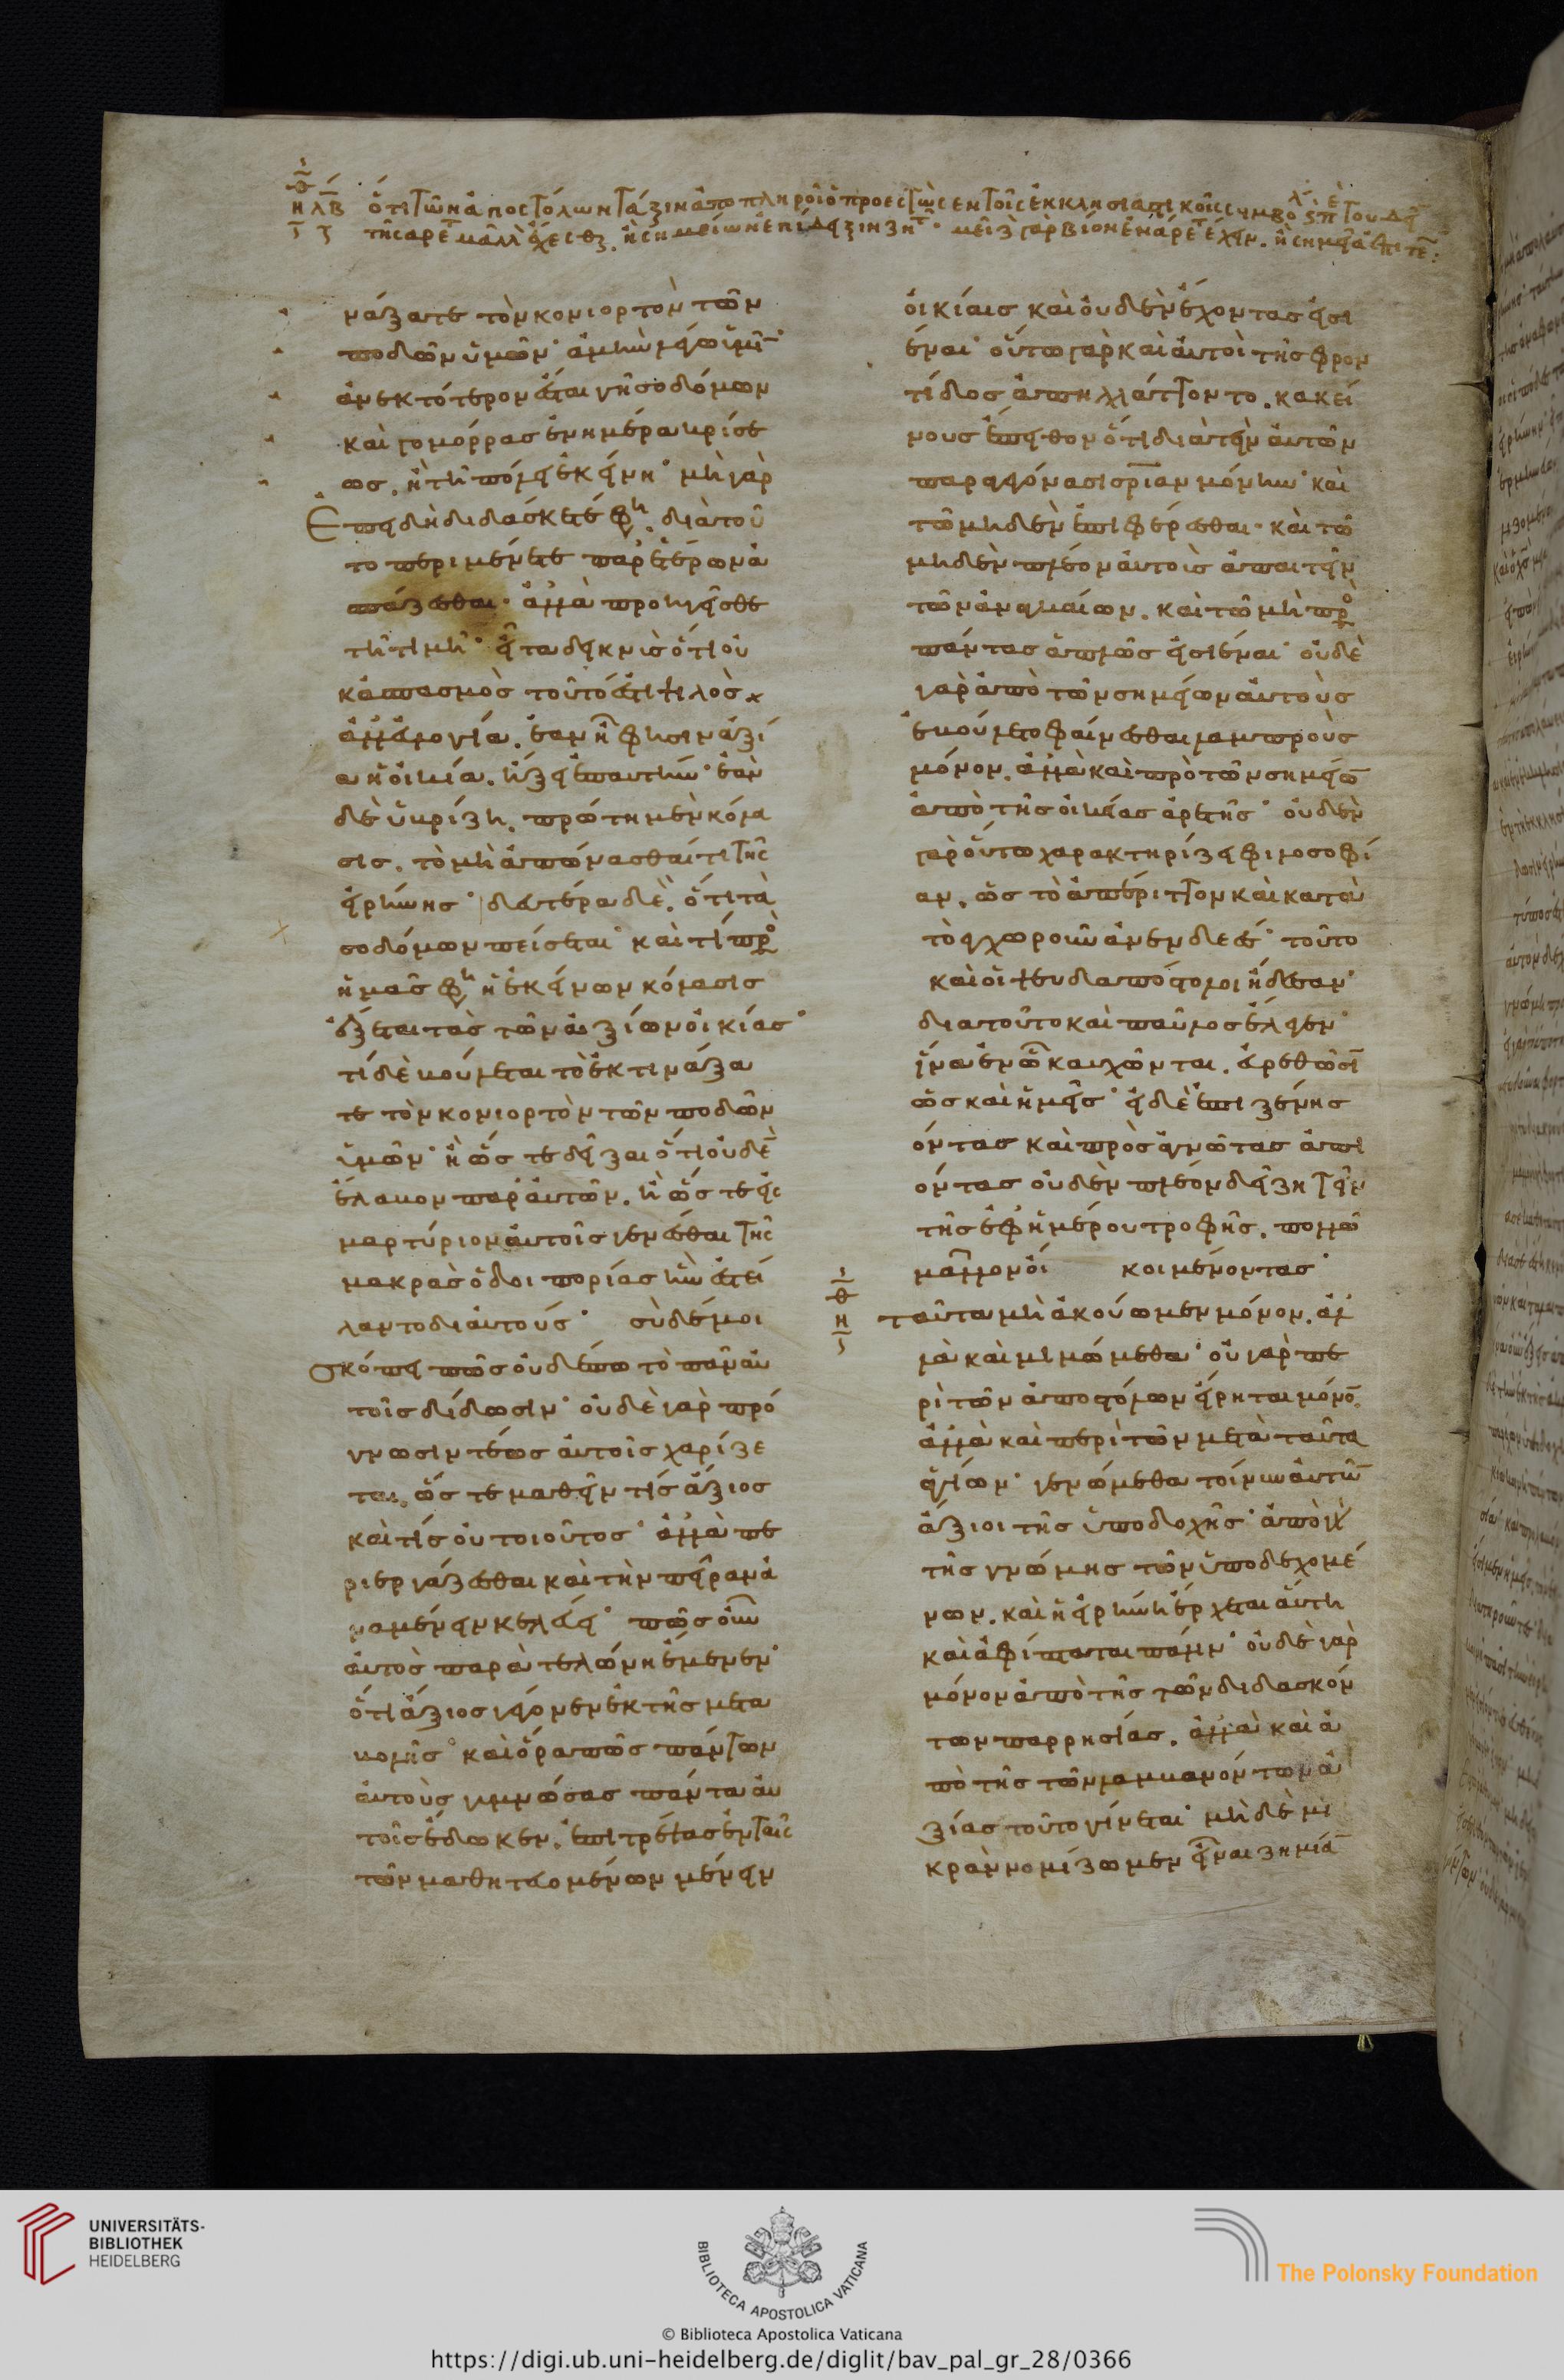 ὅτι τῶν ἀποστόλων τάξιν ἀποπληροῖ ὁ προεστὼς ἐν τοῖς ἐκκλησιαστικοῖς συμβο
τῆς ἀρετ μᾶλλ ἔχεσθαι. ἢ σημείων ἐπίδειξιν ζητ· μεῖζ γὰρ βίον ἐνάρετ ἔχειν. ἢ σημεῖα
νάξατε τὸν κονιορτὸν τῶν
ποδῶν ὑμῶν· ἀμὴν λέγω ὑμῖν·
ἀνεκτότερον ἔσται γῆ σοδόμων
καὶ γομόρρας ἐν ἡμέρα κρίσε
ως. ἢ τῆ πόλει ἐκείνη· μὴ γὰρ
Ἐπειδὴ διδάσκετέ φη. διὰ τοῦ
το περιμένετε παρ' ἑτέρων ἀ
σπάζεσθαι· ἀλλὰ προηγεῖσθε
τῆ τιμῆ· εἶτα δεικνὺς ὅτι οὐ
κ ἀσπασμὸς τοῦτό ἐστι ψιλὸς
ἀλλ' εὐλογία. ἐὰν ἦ φησιν ἀξί
α ἡ οἰκία. ἥξει ἐπ' αὐτήν· ἐὰν
δὲ ὑβρίζη. πρώτη μὲν κόλα
σις. τὸ μὴ ἀπώνασθαί τι τῆς
εἰρήνης· δευτέρα δὲ. ὅτι τὰ
σοδόμων πείσεται· καὶ τί πρὸ
ἡμᾶς φη ἡ ἐκείνων κόλασις
ἕξεται τὰς τῶν ἀξίων οἰκίας·
τί δὲ βούλεται τὸ ἐκτινάξα
τε τὸν κονιορτὸν τῶν ποδῶν
ὑμῶν· ἢ ὥστε δεῖξαι ὅτι οὐδὲ
ἔλαβον παρ' αὐτῶν. ἢ ὥστε εἰς
μαρτύριον αὐτοῖς γενέσθαι τῆς
μακρᾶς ὁδοιπορίας ἣν ἐστεί
λαντο δι' αὐτούς· σὺ δέ μοι
σκόπει πῶς οὐδέπω τὸ πᾶν αὐ
τοῖς δίδωσιν· οὐδὲ γὰρ πρό
γνωσιν τέως αὐτοῖς χαρίζε
ται. ὥστε μαθεῖν τίς ἄξιος
καὶ τίς οὐ τοιοῦτος· ἀλλὰ πε
ριεργάζεσθαι καὶ τὴν πεῖραν ἀ
ναμένειν κελεύει· πῶς οὖν
αὐτὸς παρὰ τελώνη ἔμενεν·
ὅτι ἄξιος γέγονεν ἐκ τῆς μετα
βολῆς· καὶ ὅρα πῶς πάντων
αὐτοὺς γυμνώσας πάντα αὐ
τοῖς ἔδωκεν. ἐπιτρέψας ἐν ταῖς
τῶν μαθητευομένων μένειν
οἰκίαις καὶ οὐδὲν ἔχοντας εἰσι
έναι· οὕτω γὰρ καὶ αὐτοὶ τῆς φρον
τίδος ἀπηλλάττοντο. κακεί
νους ἔπειθον ὅτι διὰ τὴν αὐτῶν
παραγεγόνασι σριαν μόνην· καὶ
τῶ μηδὲν ἐπιφέρεσθαι· καὶ τῶ
μηδὲν πλέον αὐτοὺς ἀπαιτεῖν
τῶν ἀναγκαίων. καὶ τῶ μὴ πρὸ
πάντας ἁπλῶς εἰσιέναι· οὐδὲ
γὰρ ἀπὸ τῶν σημείων αὐτοὺς
ἐβούλετο φαίνεσθαι λαμπροὺς
μόνον. ἀλλὰ καὶ πρὸ τῶν σημείω
ἀπὸ τῆς οἰκείας ἀρετῆς· οὐδὲν
γὰρ οὕτω χαρακτηρίζει φιλοσοφί
αν. ὡς τὸ ἀπέριττον καὶ κατὰ
τὸ ἐγχωροῦν ἀνενδεές· τοῦτο
καὶ οἱ ψευδαπόστολοι ἤδεσαν·
διατοῦτο καὶ παῦλος ἔλεγεν·
ἵνα ἐν ὧ καυχῶνται. εὑρεθῶσι
ὡς καὶ ἡμεῖς· εἰ δὲ ἐπὶ ξένης
ὄντας καὶ πρὸς ἀγνῶτας ἀπι
όντας οὐδὲν πλέον δεῖ ζητεῖν
τῆς ἐφημέρου τροφῆς. πολλῶ
μᾶλλον οἴκοι μένοντας·
ταῦτα μὴ ἀκούωμεν μόνον. ἀλ
λὰ καὶ μιμώμεθα· οὐ γὰρ πε
ρὶ τῶν ἀποστόλων εἴρηται μόνο.
ἀλλὰ καὶ περὶ τῶν μετὰ ταῦτα
ἁγίων· γενώμεθα τοίνυν αὐτῶ
ἄξιοι τῆς ὑποδοχῆς· ἀπὸ γὰρ
τῆς γνώμης τῶν ὑποδεχομέ
νων. καὶ ἡ εἰρήνη ἔρχεται αὕτη
καὶ ἀφίπταται πάλιν· οὐδὲ γὰρ
μόνον ἀπὸ τῆς τῶν διδασκόν
των παρρησίας. ἀλλὰ καὶ ἀ
πὸ τῆς τῶν λαμβανόντων ἀ
ξίας τοῦτο γίνεται· μὴ δὲ μι
κρὰν νομίζωμεν εἶναι ζημία
UNIVERSITÄTS-
BIBLIOTHEK
HEIDELBERG
BIBLIOTECA APOSTOLICA VATICANA
The Polonsky Foundation
© Biblioteca Apostolica Vaticana
https://digi.ub.uni-heidelberg.de/diglit/bav_pal_gr_28/0366